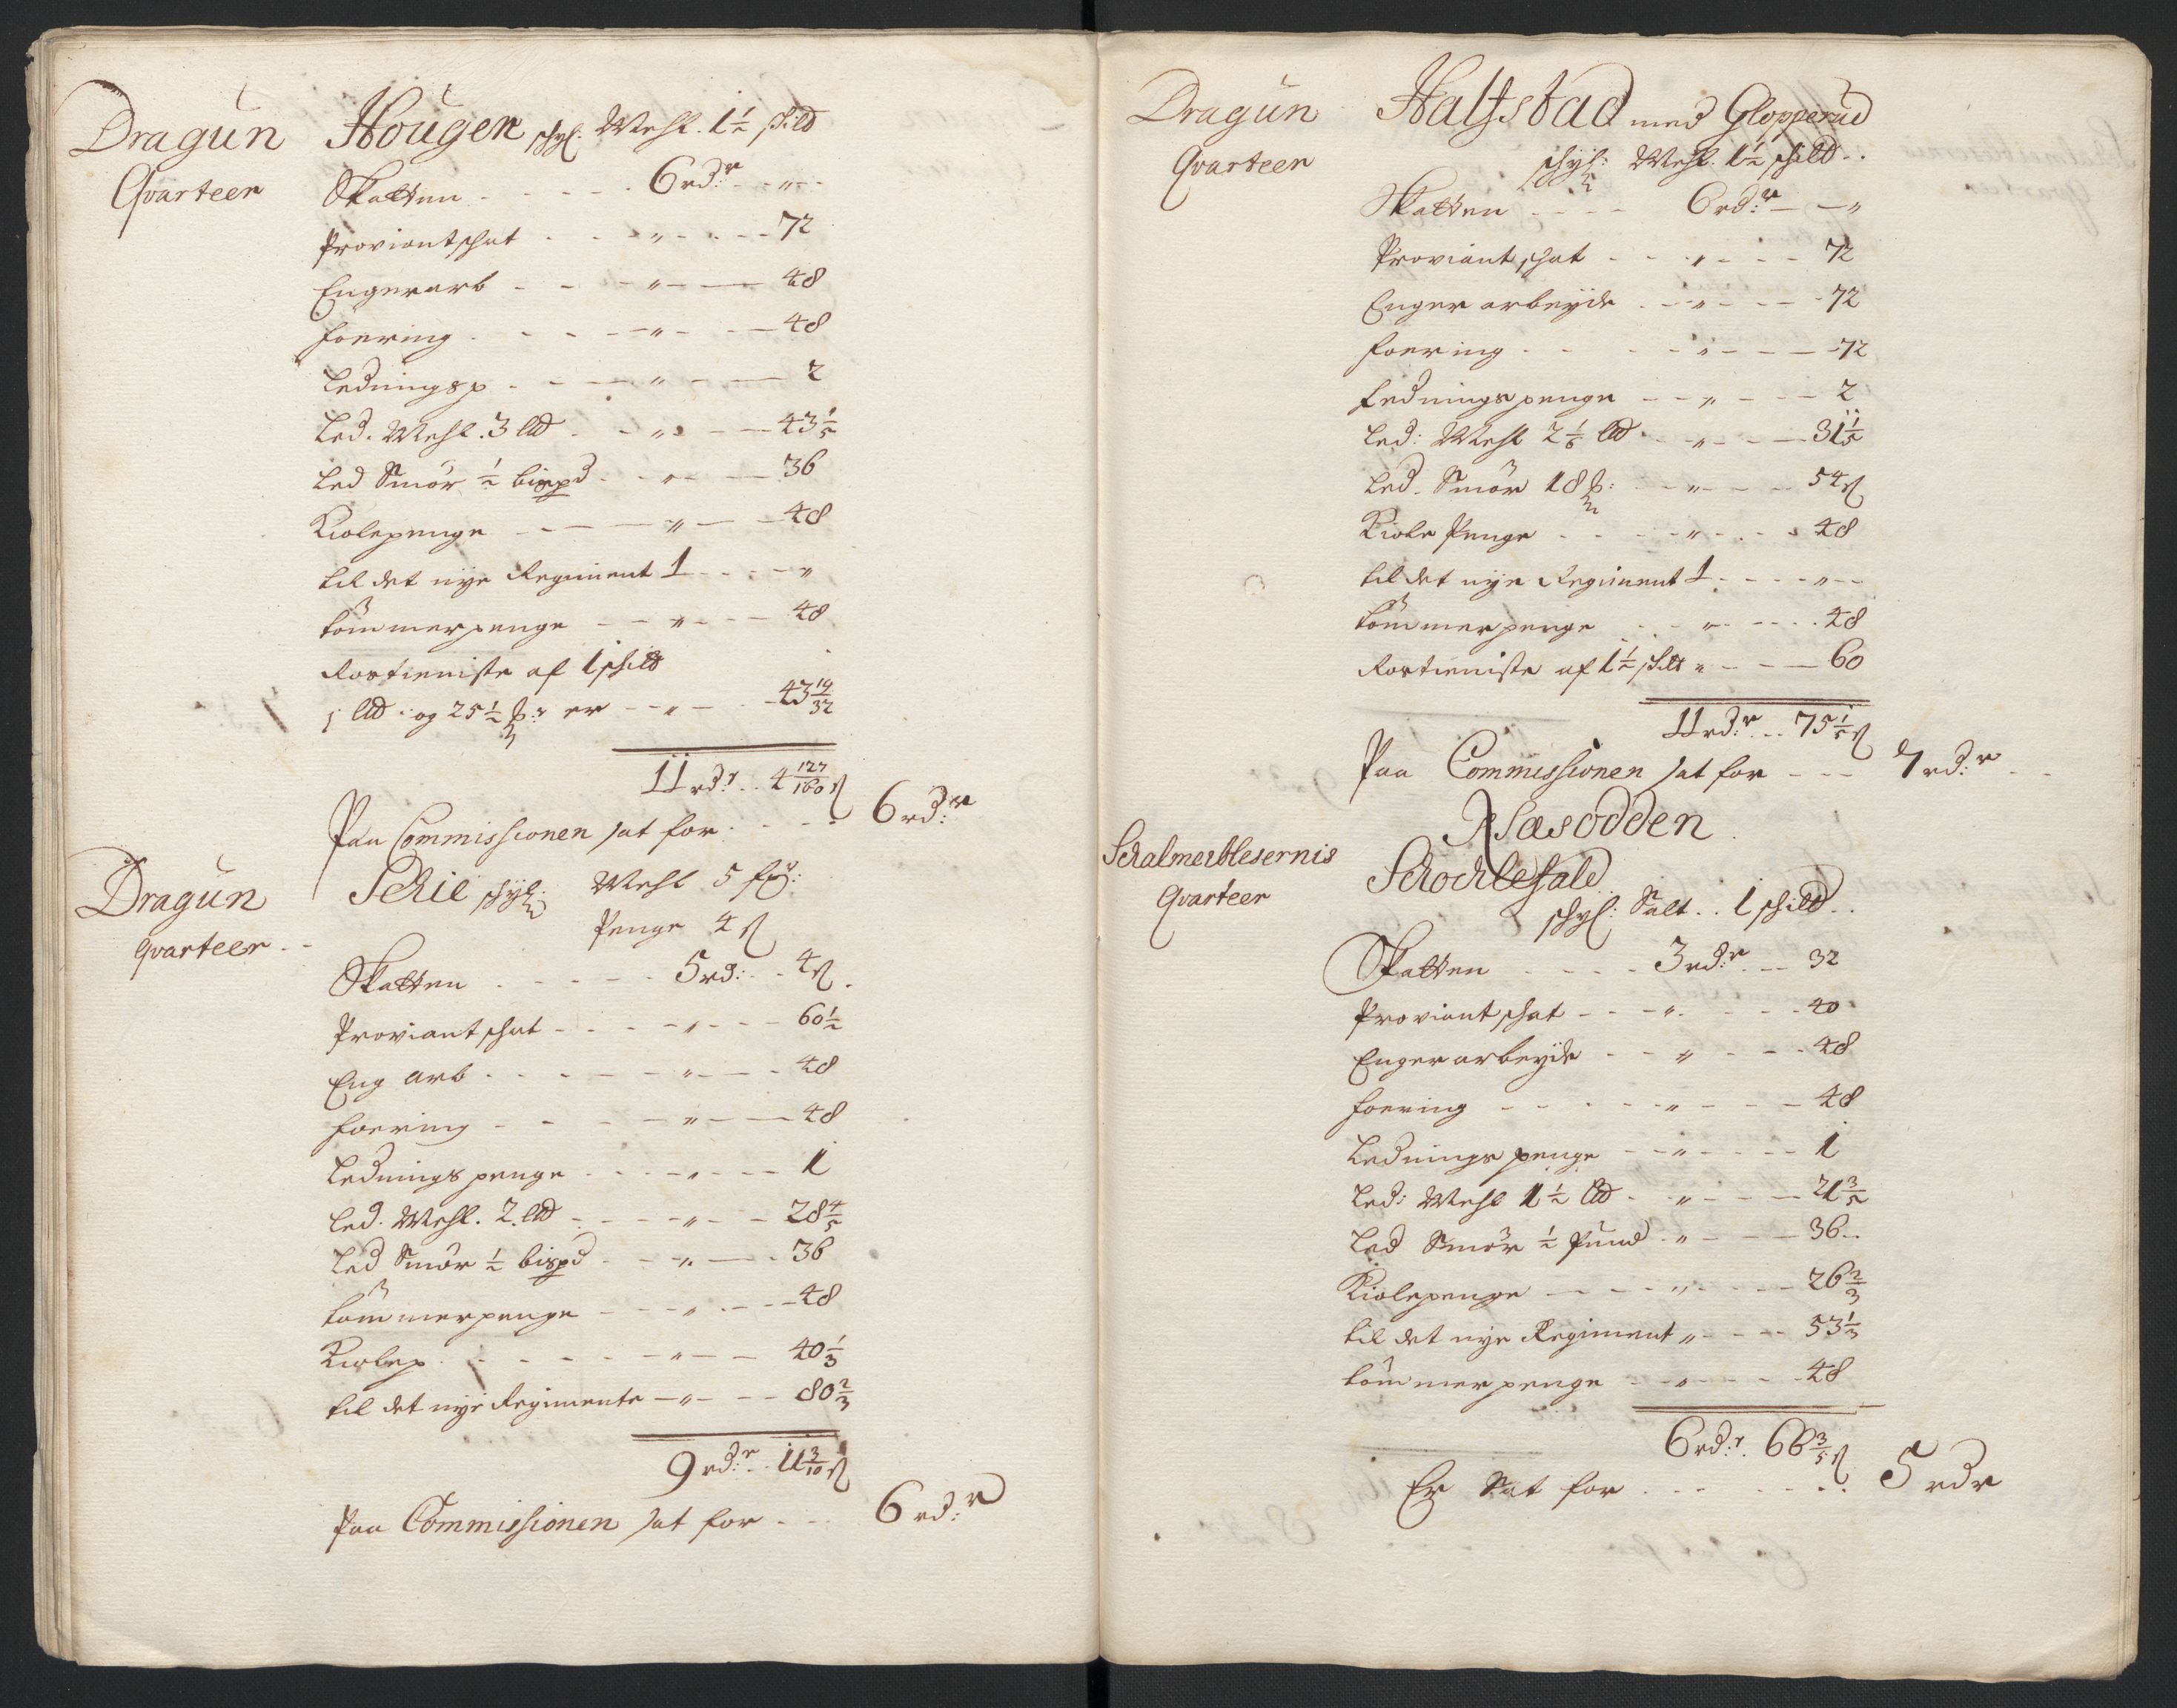 Dragun
Qvarteer
Hougen schyl. Mehl. 1½ skild
Skatten - - - 6 rd:r - - „ -
Proviantschat - - „ - - - 72
Engerarb - - - „ - - 48
foering - - - - „ - - 48
Ledningsp - - - „ - - 2
Led. Mehl. 3 lld - - „ - - 43 1/5
Led Smör ½ bispd - - „ - - 36
Kiolepenge - - - „ - - 48
til det nye Regiment 1 - - - „
tömmerpenge - - „ - - 48
Rostieniste af 1 skild
1 lld og 25½ er - - „ - - 43 19/32
11 rd:r - 4 127/160 s
Paa Commissionen sat for - - - 6 rd:r
Dragun
qvarteer
Schie schyl: Mehl 5 
Penge 4 s
Skatten - - - - 5 rd: - 4 s
Proviantschat - - - „ - - 60½
Eng arb - - - - „ - - 48
foering - - - - „ - - 48
Lednings penge - - - „ - - 1
Led. Mehl. 2. lld - - - „ - - 28 4/5
Led Smör ½ bispd - - „ - - 36
tömmerpenge - - - „ - - 48
Kiolep. - - - - „ - - 40 1/3
til det nye Regimente - „ - - 80 2/3
9 rd:r - 11 3/10 s
Paa Commissionen sat for - - - 6 rd:r
Dragun
Qvarteer
Halfstad med Glopperud
schyl: Mehl. 1½ skild - -
Skatten - - - - 6 rd:r - - „
Proviant schat - - - „ - - - 72
Enger arbeyde - - „ - - - 72
foering - - - - „ - - - 72
Ledningspenge - - „ - - - 2
Led: Mehl 2 1/6 lld - - „ - - 31 1/5
Led. Smör 18 - - „ - - 54 s
Kiole Penge - - - „ - - - 48
til det nye Regiment 1 - - - „ - -
tömmerpenge - - „ - - - 48
Rostieniste af 1½ skild „ - - - 60
11 rd:r - - 75 1/5 s
Paa Commissionen sat for - - - 7 rd:r - -
Næsodden
Schalmeiblesernis
Qvarteer
Schochlefald
schyl: Salt . . 1 skild . .
Skatten - - - - 3 rd:r - - 32
Proviantschat - - - „ - - - 40
Engerarbeyde - - „ - - - 48
foering - - - - „ - - - 48
Lednings penge - - „ - - - 1
Led: Mehl 1½ lld - - „ - - - 21 3/5
Led Smör ½ Pund - „ - - - 36 - -
Kiolepenge - - - - „ - - - 26 2/3
til det nye Regiment „ - - - 53 1/3
tömmerpenge - - „ - - - 48
6 rd:r. 66 3/5 s
Er Sat for - - - - - - 5 rdr